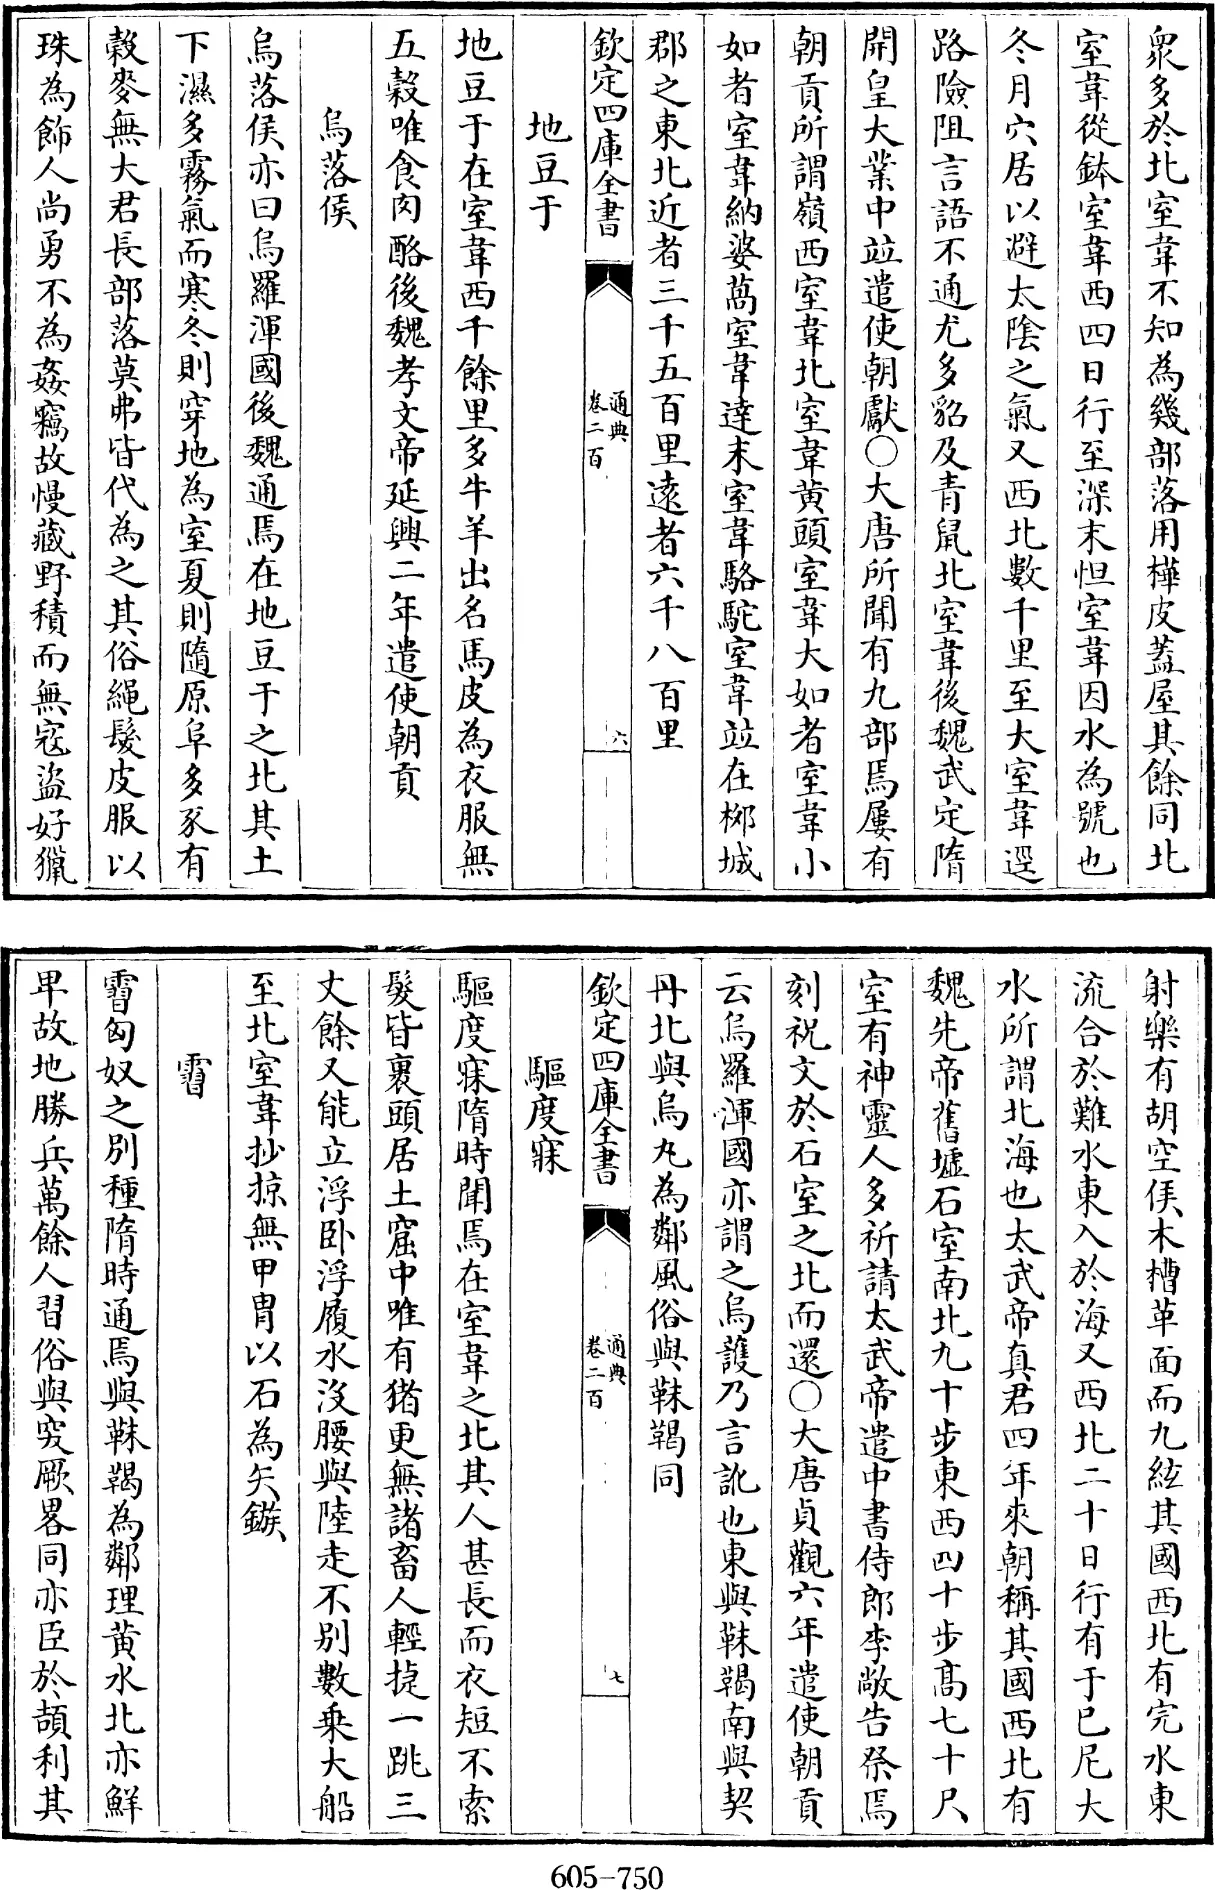 衆多於北室韋不知為幾部落用樺皮蓋屋其餘同北
室韋從鉢室韋西四日行至深末怛室韋因水為號也
冬月穴居以避太陰之氣又西北數千里至大室韋逕
路險阻言語不通尤多貂及青鼠北室韋後魏武定隋
開皇大業中竝遣使朝獻○大唐所聞有九部焉屢有
朝貢所謂嶺西室韋北室韋黄頭室韋大如者室韋小
如者室韋納婆萵室韋達末室韋駱駝室韋竝在栁城
郡之東北近者三千五百里逺者六千八百里
欽定四庫全書
通典
卷二百
六
地豆于
地豆于在室韋西千餘里多牛羊出名馬皮為衣服無
五穀唯食肉酪後魏孝文帝延興二年遣使朝貢
烏落侯
烏落侯亦曰烏羅渾國後魏通焉在地豆于之北其土
下濕多霧氣而寒冬則穿地為室夏則隨原阜多豕有
穀麥無大君長部落莫弗皆代為之其俗繩髮皮服以
珠為飾人尚勇不為姦竊故慢藏野積而無宼盜好獵
射樂有胡空侯木槽革面而九絃其國西北有完水東
流合於難水東入於海又西北二十日行有于巳尼大
水所謂北海也太武帝真君四年來朝稱其國西北有
魏先帝舊墟石室南北九十步東西四十步髙七十尺
室有神靈人多祈請太武帝遣中書侍郎李敞告祭焉
刻祝文於石室之北而還○大唐貞觀六年遣使朝貢
云烏羅渾國亦謂之烏䕶乃言訛也東與靺鞨南與契
丹北與烏丸為鄰風俗與靺鞨同
欽定四庫全書
通典
卷二百
七
驅度寐
驅度寐隋時聞焉在室韋之北其人甚長而衣短不索
髮皆裹頭居土窟中唯有猪更無諸畜人輕捷一跳三
丈餘又能立浮卧浮履水沒腰與陸走不别數乗大船
至北室韋抄掠無甲胄以石為矢鏃
霫
霫匈奴之别種隋時通焉與靺鞨為鄰理黄水北亦鮮
卑故地勝兵萬餘人習俗與突厥畧同亦臣於頡利其
605-750